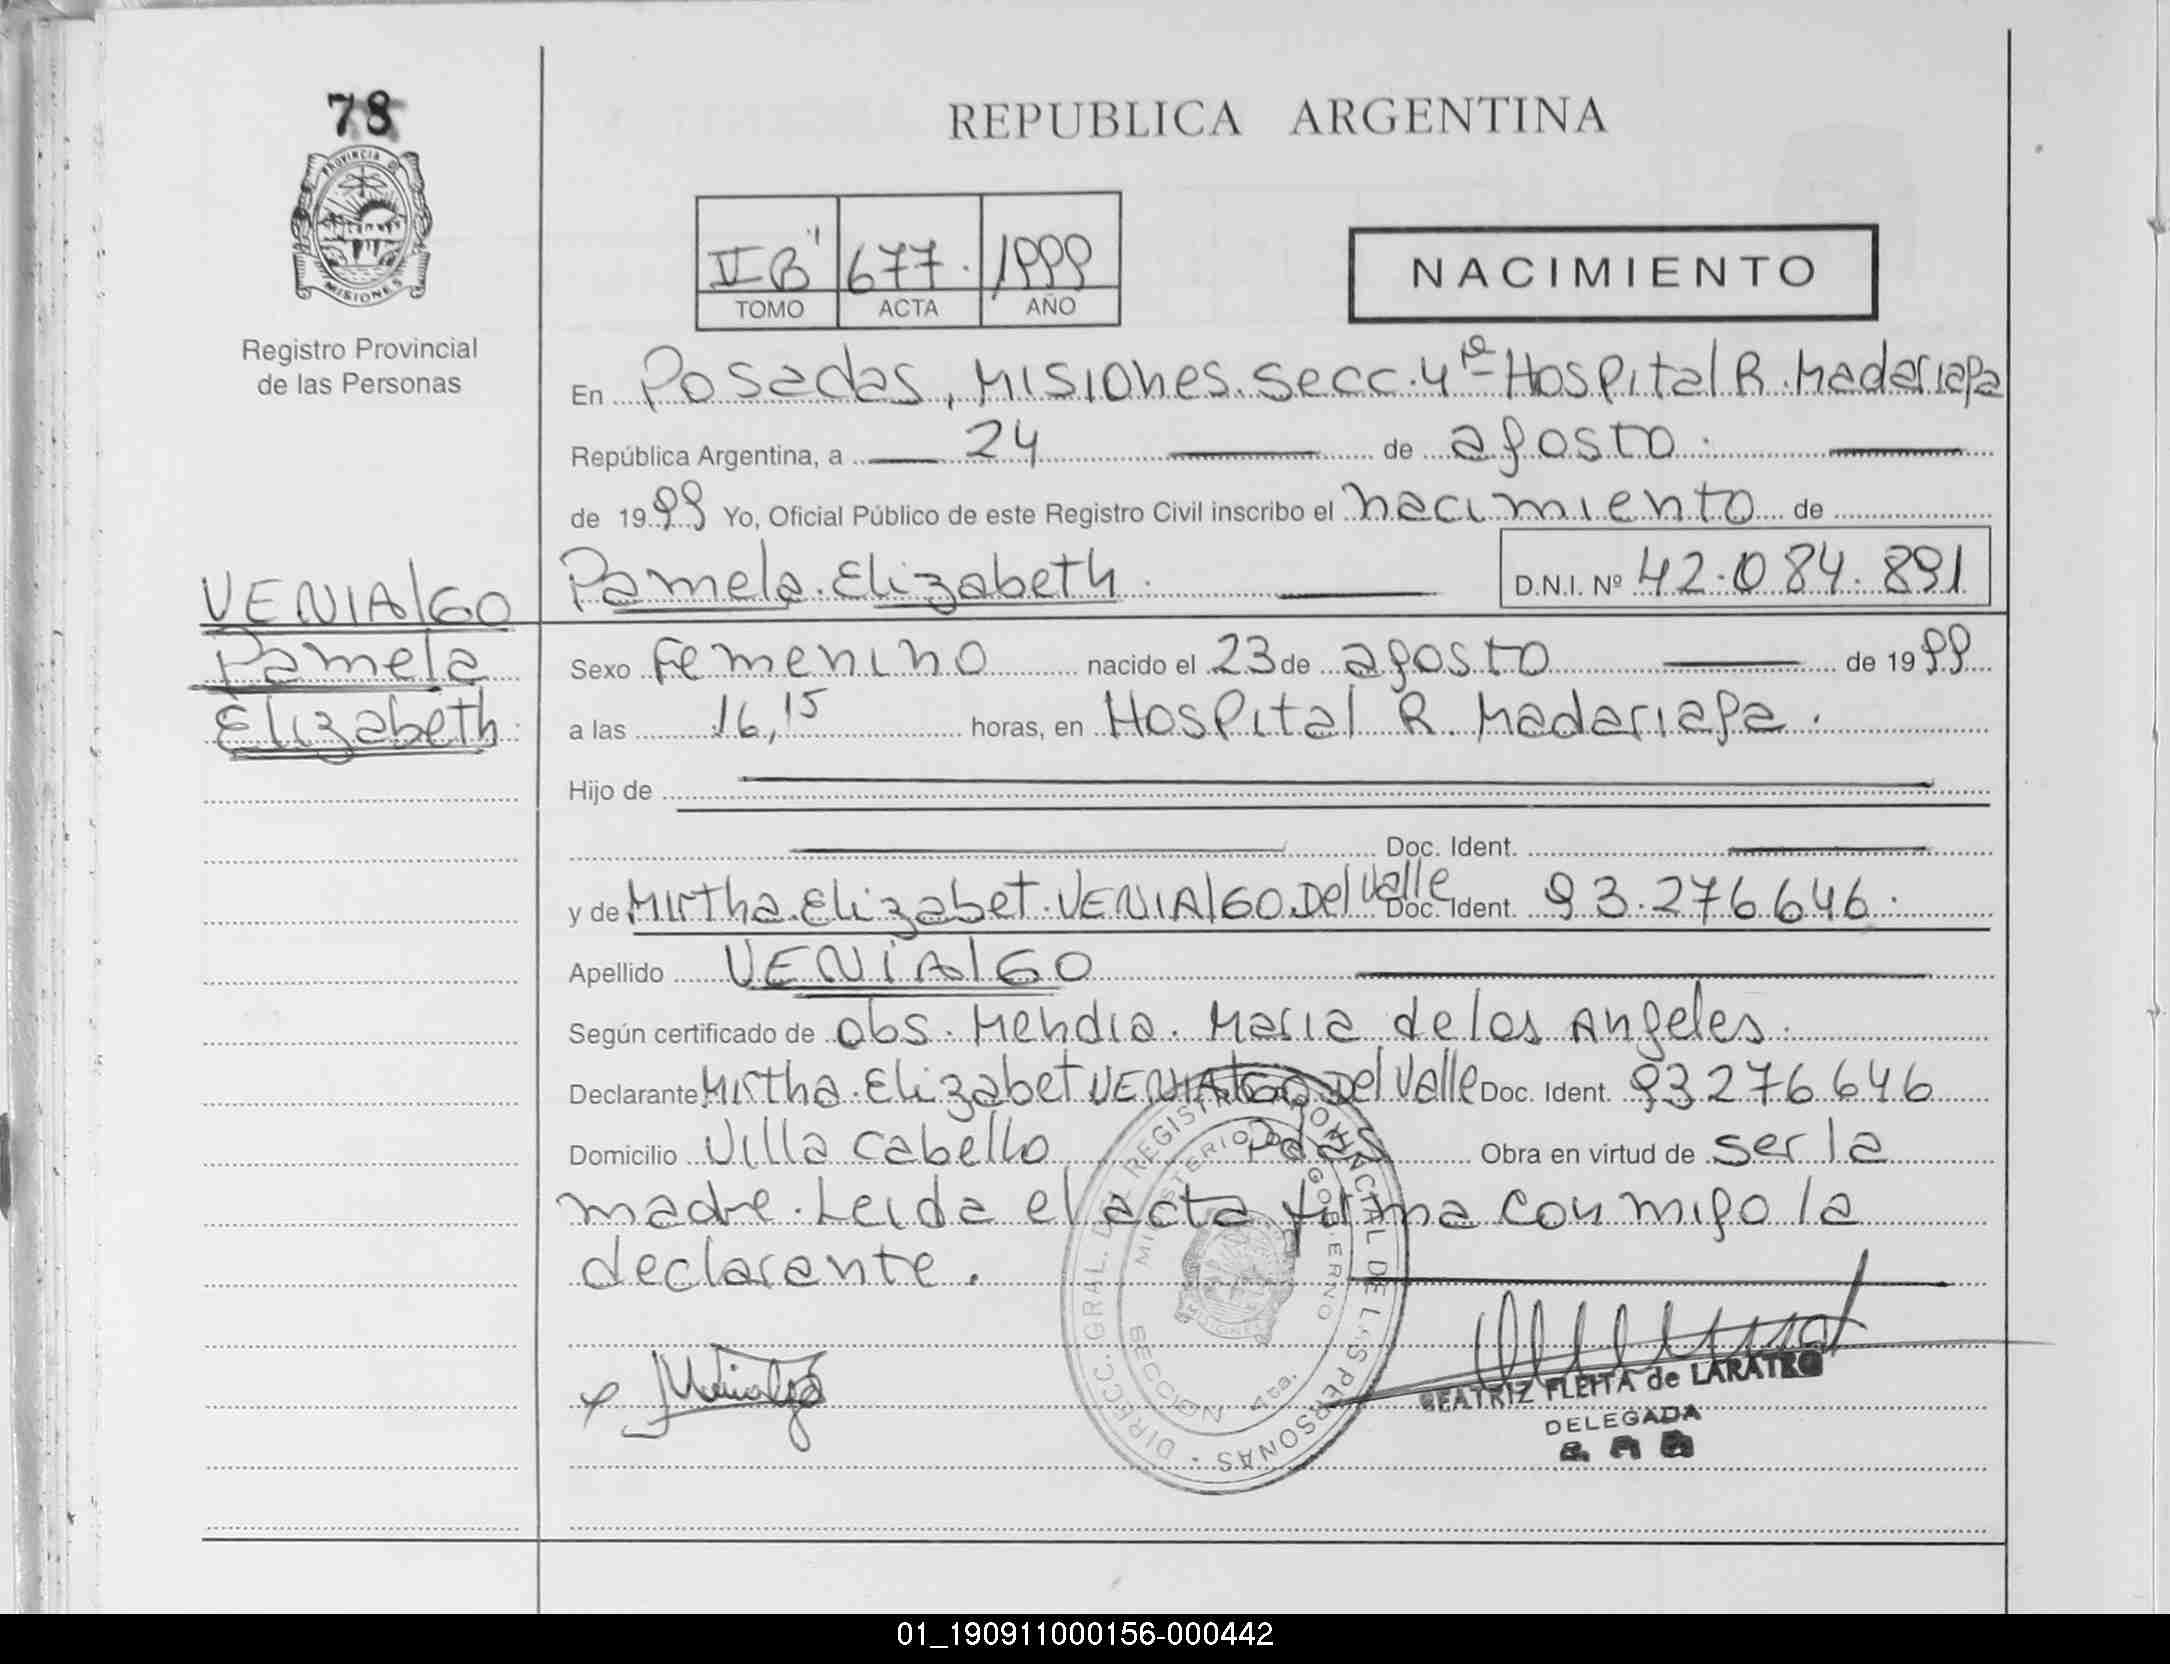 78
PROVINCIA DE
MISIONES
Registro Provincial
de las Personas
REPUBLICA ARGENTINA
II B" 677. 1999
TOMO ACTA AÑO
NACIMIENTO
En Posadas, Misiones. Secc. 4ª Hospital R. Madariaga
República Argentina, a 24 de agosto.
de 1999 Yo, Oficial Público de este Registro Civil inscribo el nacimiento de
Pamela. Elizabeth. D.N.I. Nº 42.084.891
VENIAlGO
Pamela
Elizabeth.
Sexo Femenino nacido el 23 de agosto de 1999
a las 16,15 horas, en Hospital R. Madariaga.
Hijo de
Doc. Ident.
y de Mirtha. Elizabet. VENIAlGO. Del Valle Doc. Ident. 93.276646.
Apellido VENIAlGO
Según certificado de Obs. Mendia. Maria de los Angeles.
Declarante Mirtha. Elizabet VENIAlGO Del Valle Doc. Ident. 93276646
Domicilio Villa Cabello Pdas Obra en virtud de ser la
madre. Leida el acta firma conmigo la
declarante.
DIRECC. GRAL. DEL REGISTRO PROVINCIAL DE LAS PERSONAS
MINISTERIO DE GOBIERNO
SECCION 4ta.
BEATRIZ FLEITA de LARATRO
DELEGADA
01_190911000156-000442